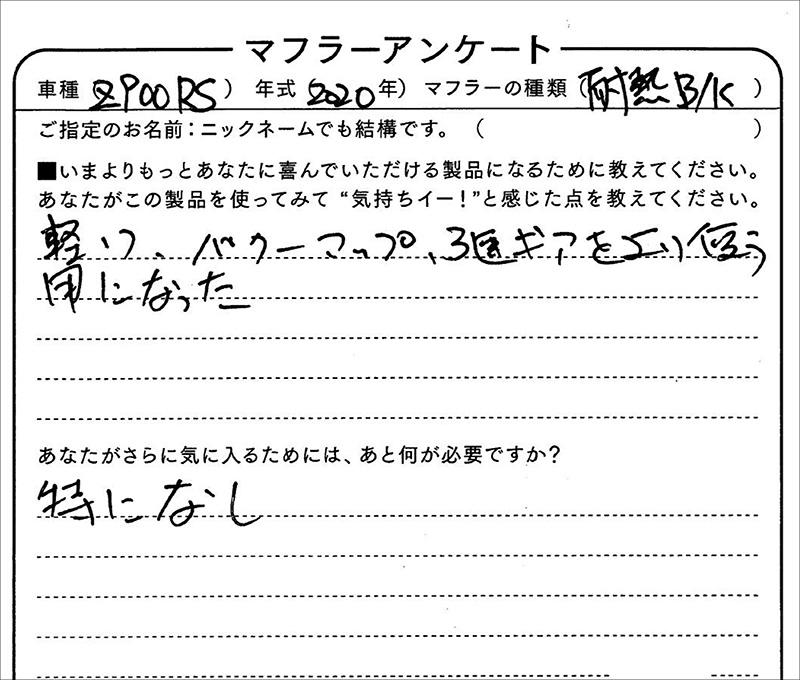 マフラーアンケート
車種 Z900RS) 年式 (2020年) マフラーの種類 (耐熱B/K )
ご指定のお名前：ニックネームでも結構です。 ( )
■いまよりもっとあなたに喜んでいただける製品になるために教えてください。
あなたがこの製品を使ってみて “気持ちイー！”と感じた点を教えてください。
軽い、パワーマップ、3速ギアをより使う
用になった
あなたがさらに気に入るためには、あと何が必要ですか？
特になし